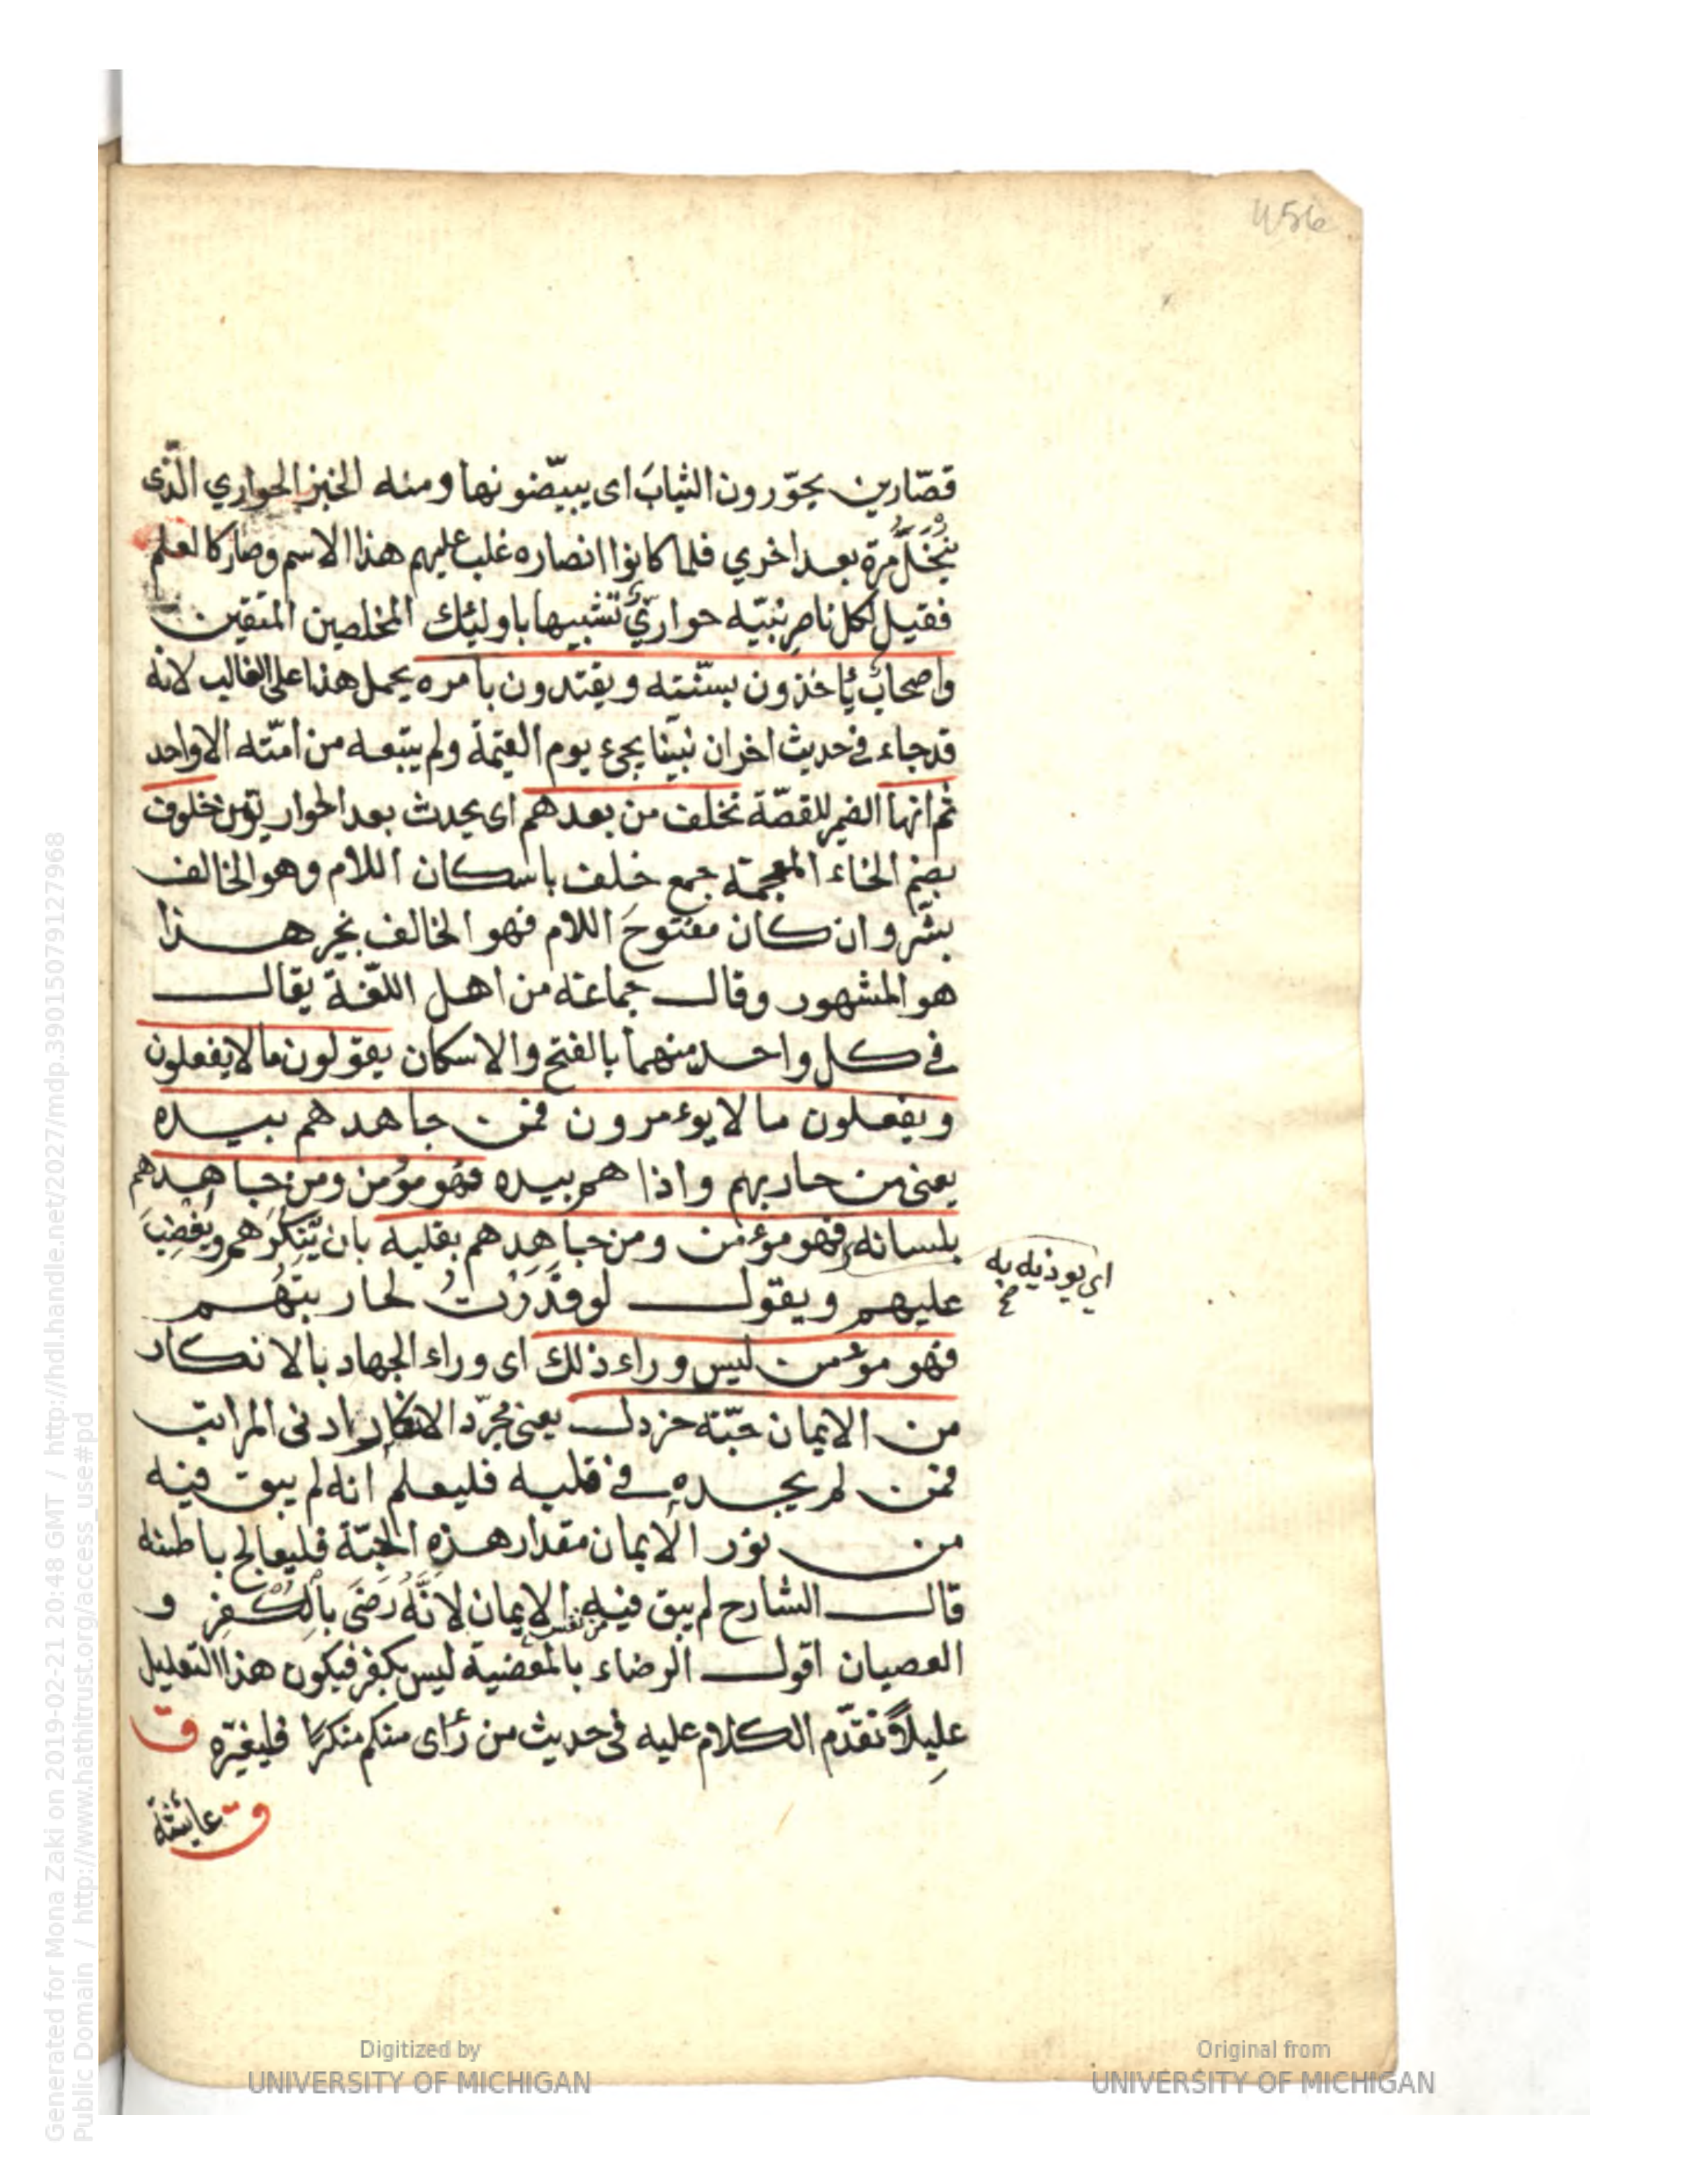 456
قصّارين يحوّرون الثيابَ اى يبيّضونها ومنه الخبز الحواري الّذى
يُنْخَلُ مرّة بعد اخري فلما كانوا انصاره غلب عليهم هذا الاسم وصار كالعلم
فقيل لكل ناصرِ نبيّه حواريٌّ تشبيها باولئك المخلصين المتقين
واصحابٌ يأخذون بسنّته ويقتدون بامره يحمل هذا على الغالب لانه
قد جاء فى حديث اخر ان نبينا يجئ يوم القيمة ولم يتبعه من امّته الا واحد
ثم انها الضمير للقصّة تخلف من بعدهم اى يحدث بعد الحواريّين خلوف
بضم الخاء المعجمة جمع خلف باسكان اللام وهو الخالف
بشر وان كان مفتوحَ اللام فهو الخالف بخير هذا
هو المشهور وقال جماعة من اهل اللّغة يقال
فى كل واحد منهما بالفتح والاسكان يقولون ما لا يفعلون
ويفعلون ما لا يوءمرون فمن جاهدهم بيده
يعنى من حاربهم واذاهم بيده فهو مؤمن ومن جاهدهم
بلسانه فهو مؤمن ومن جاهدهم بقلبه بان يُنكِرَهم ويَغضِبَ
اي يوذيه به
صح
عليهم ويقول لو قَدَرْتُ لحاربتُهُم
فهو مؤمن ليس وراء ذلك اى وراء الجهاد بالانكار
من الايمان حبّة خردل يعنى مجرّد الانكار ادنى المراتب
فمن لم يجده فى قلبه فليعلم انه لم يبق فيه
من نور الايمان مقدار هذه الحبّة فليعالج باطنه
قال الشارح لم يبق فيه من نفس الايمان لانَّهُ رَضِىَ بالكُفْرِ و
العصيان اقول الرضاء بالمعصية ليس بكفر فيكون هذا التعليل
عليلاً وتقدّم الكلام عليه فى حديث من رأى منكم منكرًا فليغيّره ق
ق عائشة
Digitized by
UNIVERSITY OF MICHIGAN
Original from
UNIVERSITY OF MICHIGAN
Generated for Mona Zaki on 2019-02-21 20:48 GMT / http://hdl.handle.net/2027/mdp.39015079127968
Public Domain / http://www.hathitrust.org/access_use#pd